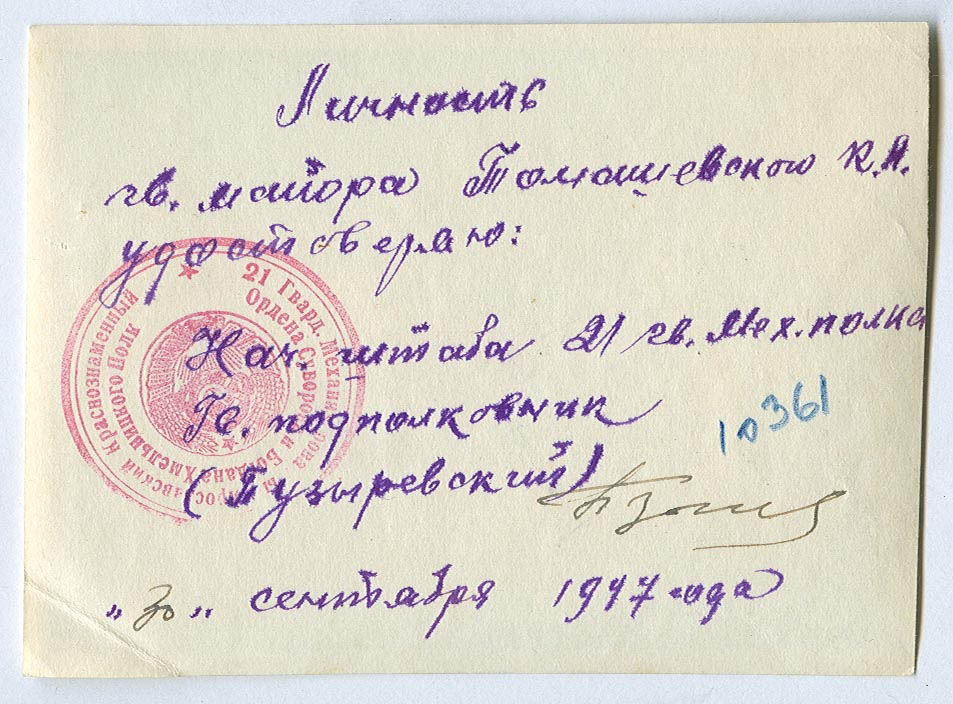 Личность
гв. майора Томашевского К.А.
удостоверяю:
Нач. штаба 21 гв. Мех. полка
Гв. подполковник
(Бузыревский)
"30" сентября 1947 года
10361
21 Гвард. Механизирова
Ордена Суворова и Богдана Хмельницкого Полк
Краснознаменный